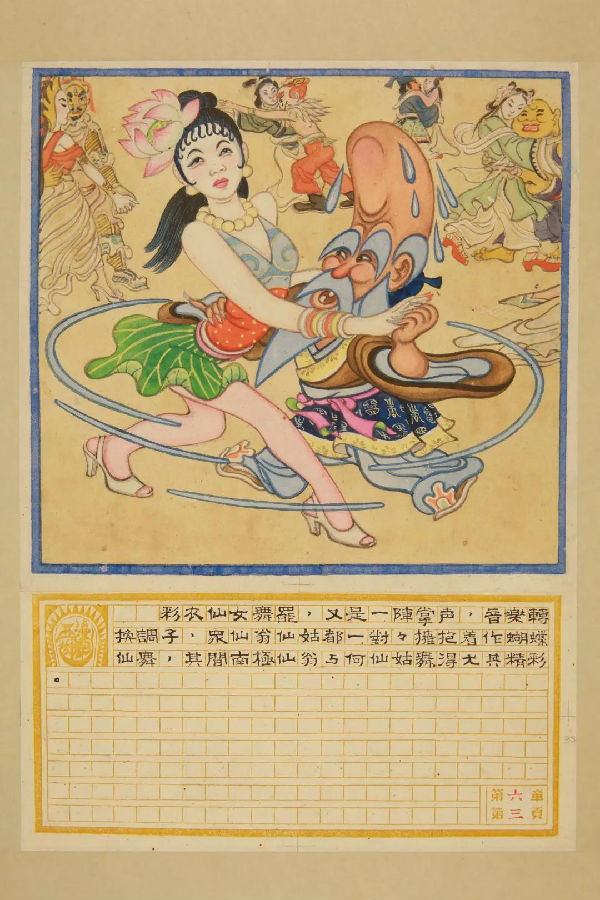 彩衣仙女舞罷，又是一陣掌声，音樂轉
換調子，眾仙翁仙姑都一對々擁抱着作蝴蝶
仙舞，其間南極仙翁与何仙姑舞得尤其精彩
。
第六章
第三頁